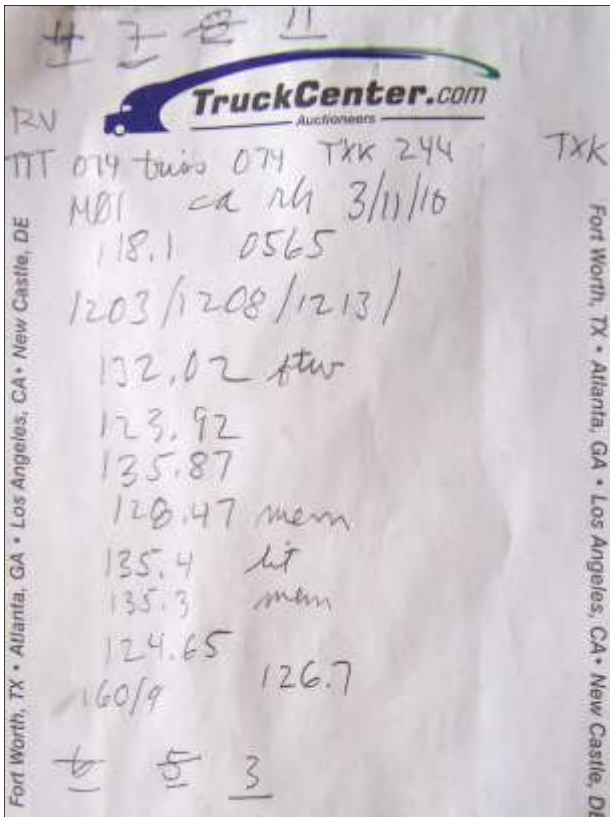 4 7 8 11
TruckCenter.com
Auctioneers
RV
TTT 074 twins 074 TXK 244 TXK
ca rh 3/11/10
118.1 0565
1203/1208/1213/
132.02 ftw
123.92
135.87
128.47 mem
135.4 lit
135.3 mem
124.65
126.7
160/9
6 5 3
Fort Worth, TX • Atlanta, GA • Los Angeles, CA • New Castle, DE
Fort Worth, TX • Atlanta, GA • Los Angeles, CA • New Castle, DE